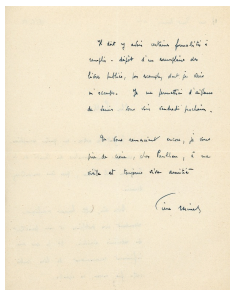 Il doit y avoir certaines formalités à
remplir - dépôt d'un exemplaire des
livres publiés, par exemple, dont je dois
m'occuper. Je me permettrai d'
de vendredi prochain.
En vous remerciant encore, je vous
prie de croire, cher Paulhan, à ma
et toujours amitié